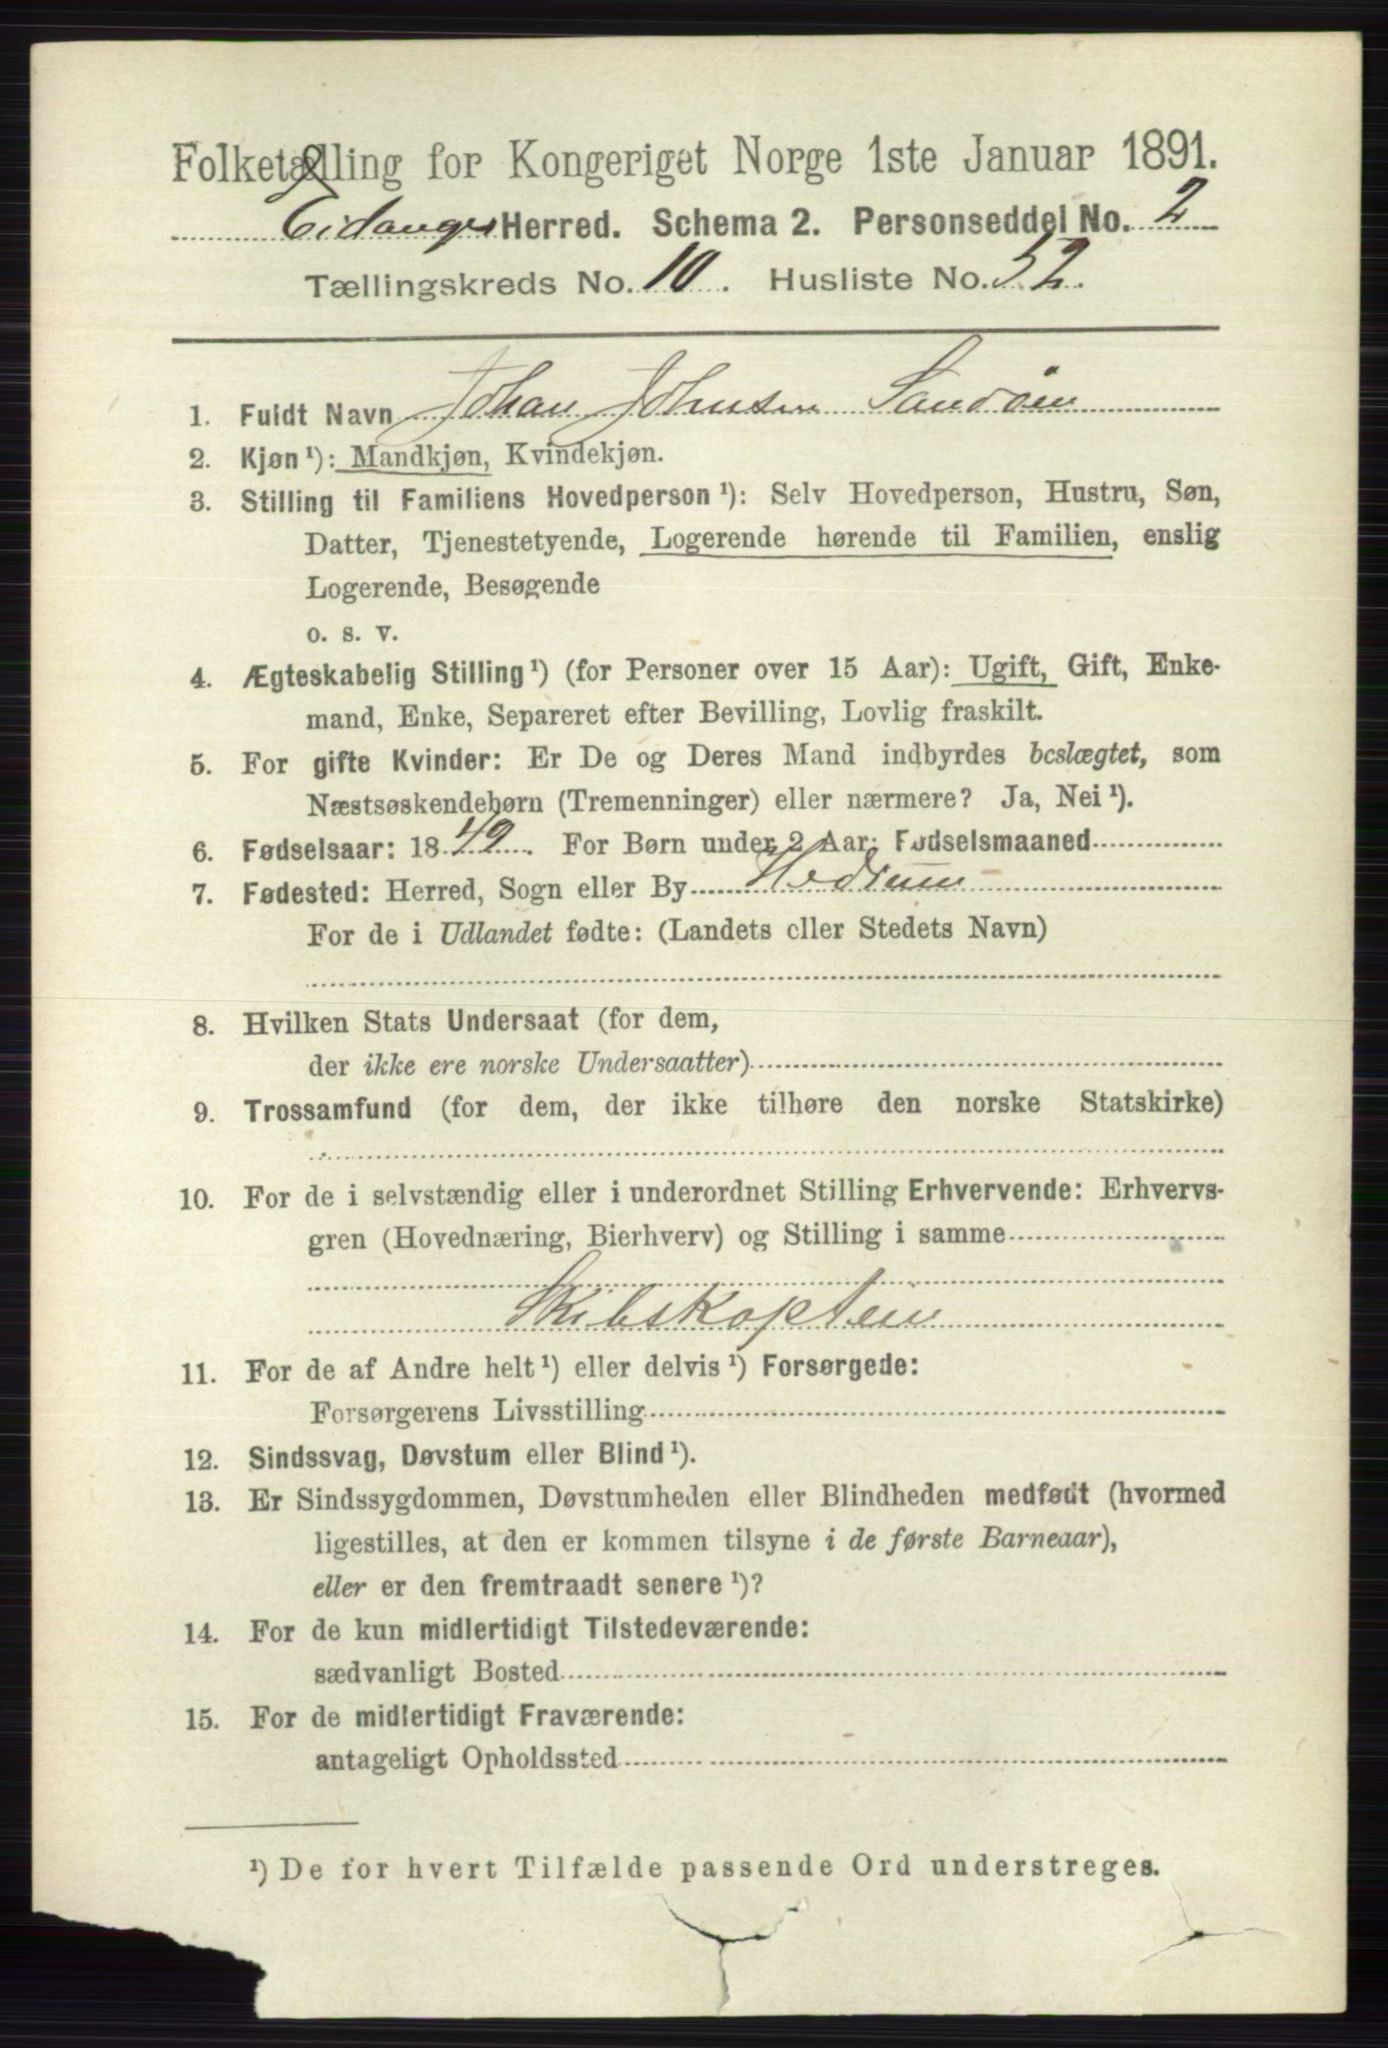 Folketælling for Kongeriget Norge 1ste Januar 1891.
Eidanger Herred. Schema 2. Personseddel No. 2
Tællingskreds No. 10. Husliste No. 52.
1. Fuldt Navn Johan Johnsen Sandøen
2. Kjøn¹): Mandkjøn, Kvindekjøn.
3. Stilling til Familiens Hovedperson¹): Selv Hovedperson, Hustru, Søn,
Datter, Tjenestetyende, Logerende hørende til Familien, enslig
Logerende, Besøgende
o. s. v.
4. Ægteskabelig Stilling¹) (for Personer over 15 Aar): Ugift, Gift, Enke-
mand, Enke, Separeret efter Bevilling, Lovlig fraskilt.
5. For gifte Kvinder: Er De og Deres Mand indbyrdes beslægtet, som
Næstsøskendebørn (Tremenninger) eller nærmere? Ja, Nei¹).
6. Fødselsaar: 1849. For Børn under 2 Aar: Fødselsmaaned
7. Fødested: Herred, Sogn eller By Hedrum
For de i Udlandet fødte: (Landets eller Stedets Navn)
8. Hvilken Stats Undersaat (for dem,
der ikke ere norske Undersaatter)
9. Trossamfund (for dem, der ikke tilhøre den norske Statskirke)
10. For de i selvstændig eller i underordnet Stilling Erhvervende: Erhvervs-
gren (Hovednæring, Bierhverv) og Stilling i samme
Skibskaptein
11. For de af Andre helt¹) eller delvis¹) Forsørgede:
Forsørgerens Livsstilling
12. Sindssvag, Døvstum eller Blind¹).
13. Er Sindssygdommen, Døvstumheden eller Blindheden medfødt (hvormed
ligestilles, at den er kommen tilsyne i de første Barneaar),
eller er den fremtraadt senere¹)?
14. For de kun midlertidigt Tilstedeværende:
sædvanligt Bosted
15. For de midlertidigt Fraværende:
antageligt Opholdssted
¹) De for hvert Tilfælde passende Ord understreges.